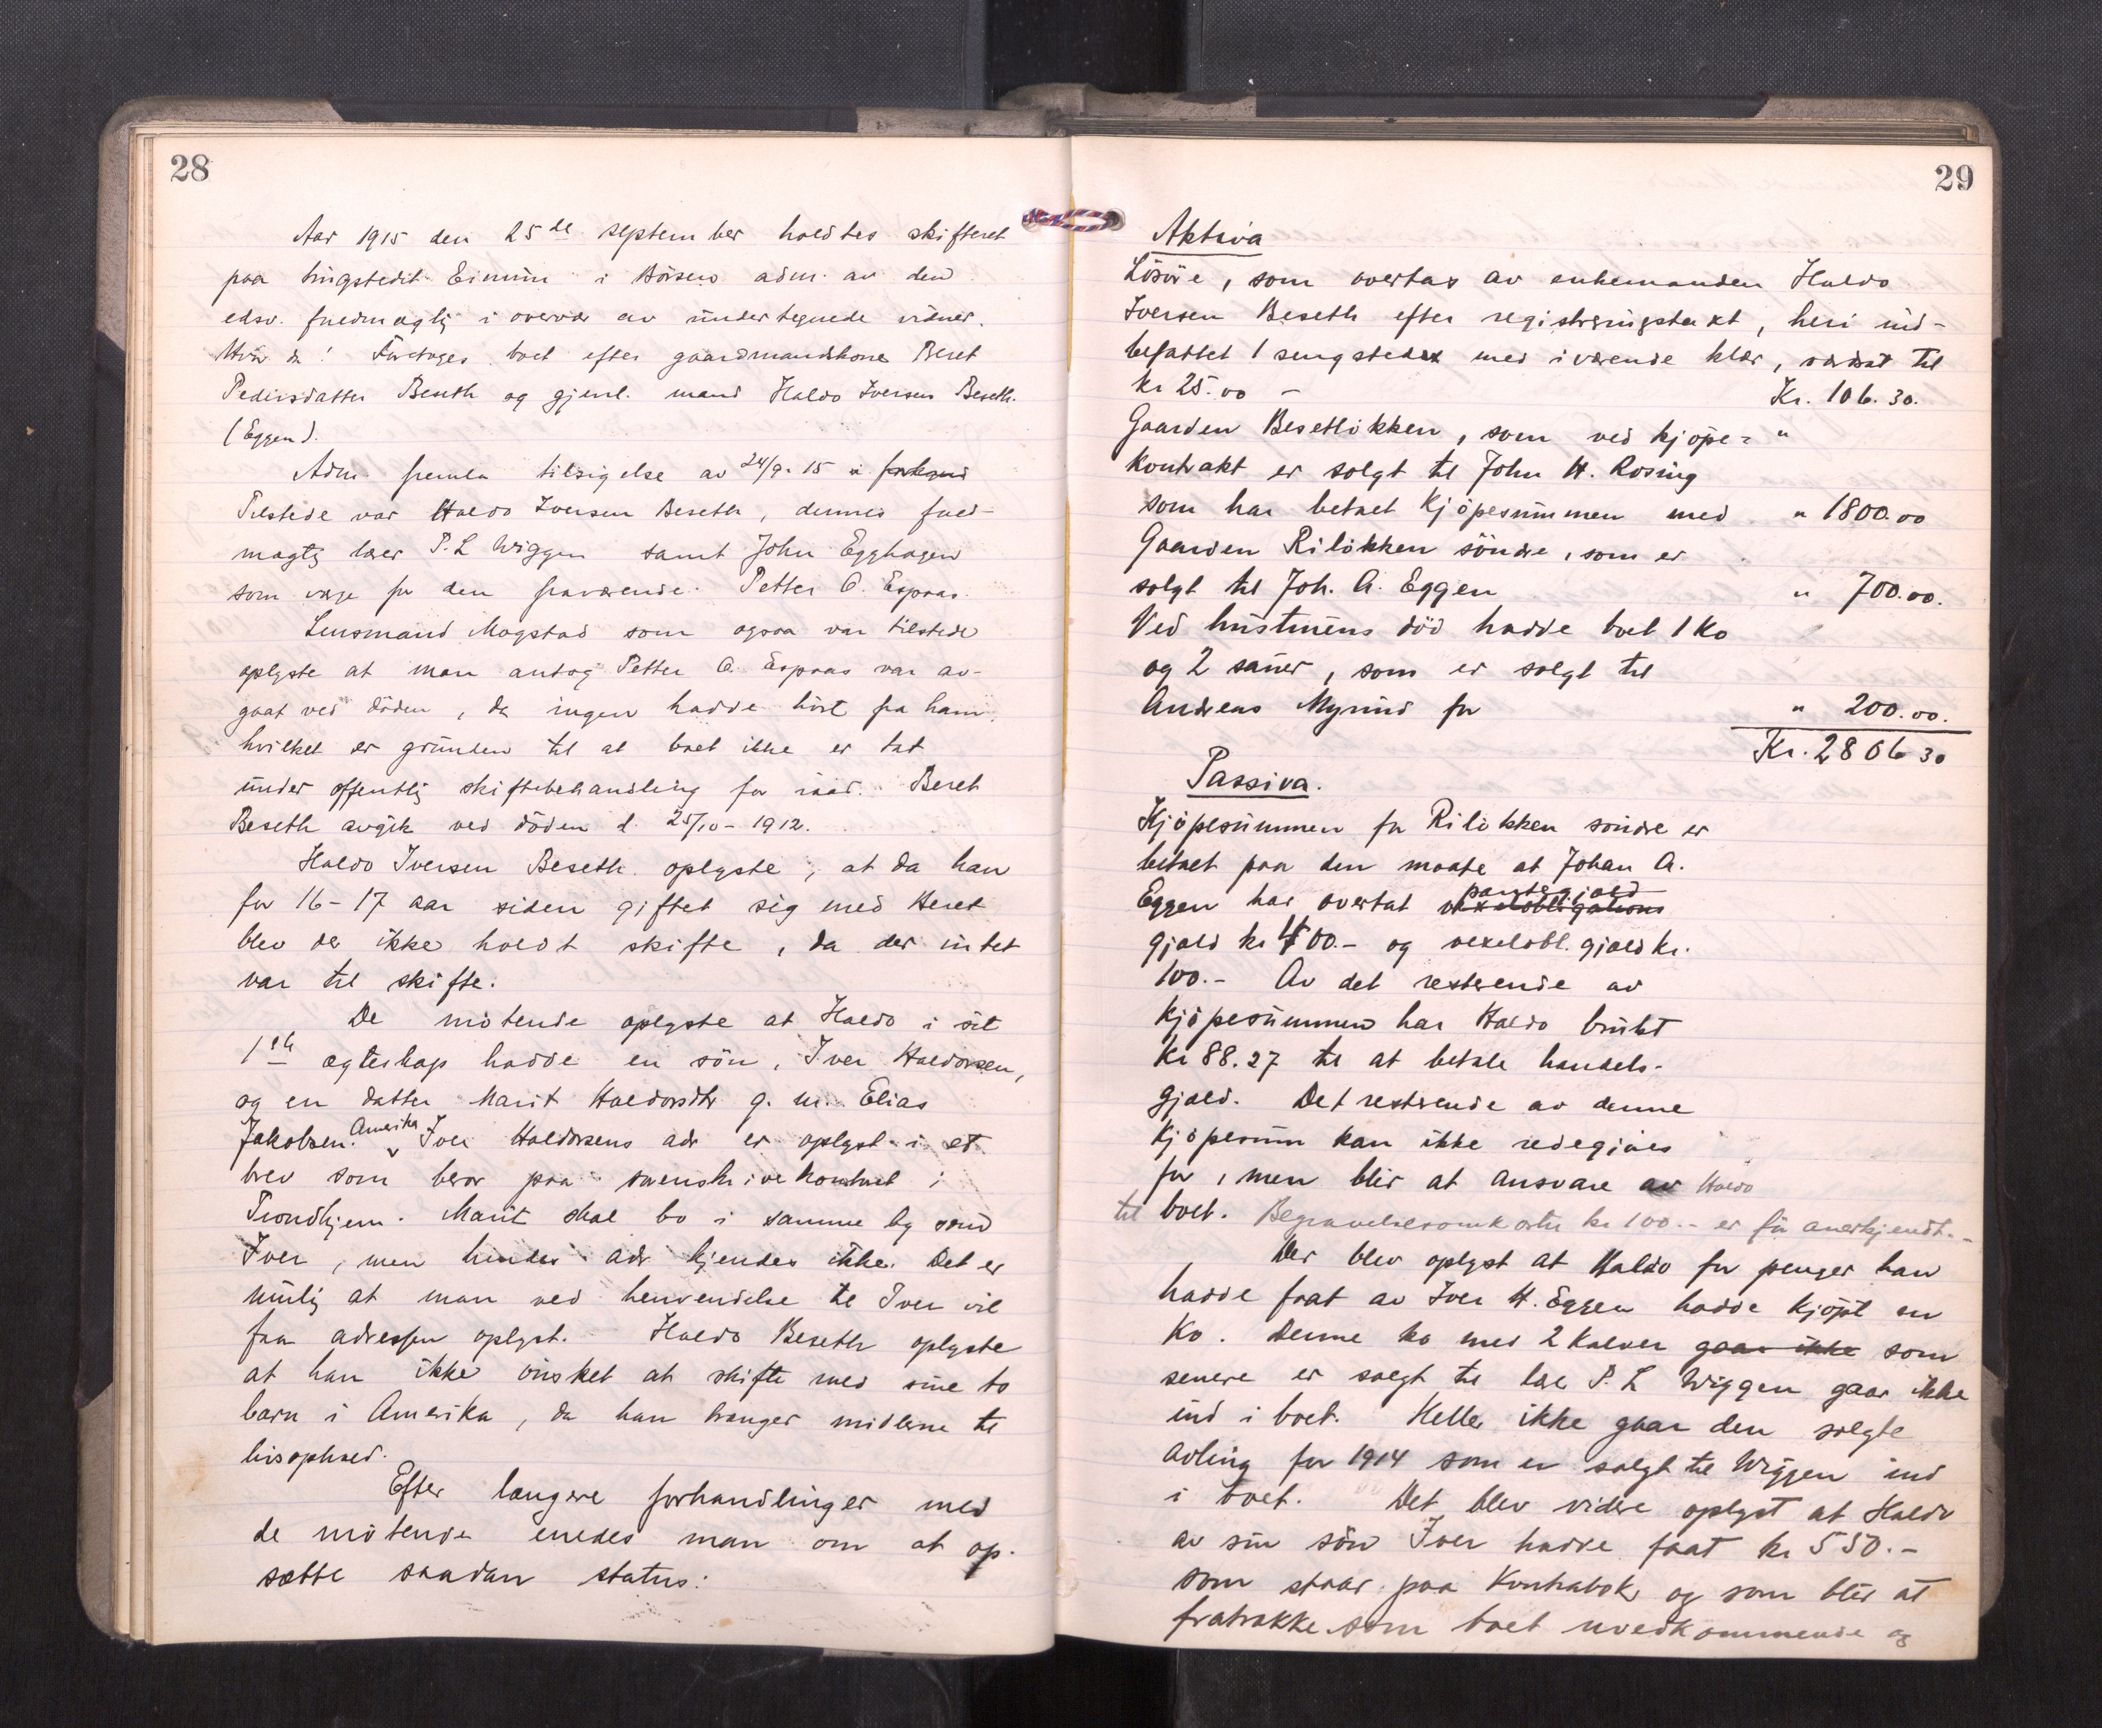 28
Aar 1915 den 25de september holdtes skifteret
paa tingstedet Eimün i Börsen adm. av den
edsv. fuldmægtig i overvær av undertegnede vidner.
Hvor da! Foretages boet efter gaardmandskone Beret
Pedersdatter Beseth og gjenl. mand Haldo Iversen Beseth.
(Eggen).
Adm. fremla tilsigelse av 24/9. 15 i forkynd
Tilstede var Haldo Iversen Beseth, dennes fuld-
mægtig lær P. L Wiggen samt John Egghagen
som verge for den fraværende Petter O. Espaas.
Lensmand Mogstad som ogsaa var tilstede
oplyste at man antog Petter O. Espaas var av-
gaat ved döden, da ingen hadde hört fra ham,
hvilket er grunden til at boet ikke er tat
under offentlig skiftebehandling før iaar. Beret
Beseth avgik ved döden d. 25/10 - 1912.
Haldo Iversen Beseth oplyste, at da han
for 16 - 17 aar siden giftet sig med Beret
blev der ikke holdt skifte, da der intet
var til skifte.
De mötende oplyste at Haldo i sit
1ste ægteskap hadde en sön, Iver Haldorsen,
og en datter Marit Haldorsdtr g. m. Elias
Jakobsen. Amerika Iver Haldorsens adr er oplyst i et
brev som beror paa sorenskriverkontoret i
Trondhjem. Marit skal bo i samme by som
Iver, men hendes adr kjendes ikke. Det er
mulig at man ved henvendelse til Iver vil
faa adressen oplyst. Haldo Beseth oplyste
at han ikke önsket at skifte med sine to
barn i Amerika, da han trænger midlerne til
livsophold.
Efter længere forhandlinger med
de mötende enedes man om at op-
sætte saadan status:
29
Aktiva
Lösöre, som overtas av enkemanden Haldo
Iversen Beseth efter registreringstakt, heri ind-
befattet 1 sengsted med iværende klær, værdsat til
kr 25.00 - Kr. 106.30.
Gaarden Besetlökken, som ved kjöpe= "
kontrakt er solgt til John H. Rosing
som har betalt kjöpesummen med " 1800.00
Gaarden Rilökken söndre, som er
solgt til Joh. A. Eggen " 700.00.
Ved hustruens död hadde boet 1 ko
og 2 sauer, som er solgt til
Andreas Myrmo for " 200.00.
Kr. 2806 30
Passiva.
Kjöpesummen for Rilökken söndre er
betalt paa den maate at Johan A.
Eggen har overtat vexelobligations pantegjæld
gjæld kr 400.- og vexelobl. gjæld kr.
100.- Av det resterende av
kjöpesummen har Haldo brukt
kr 88.27 til at betale handels-
gjæld. Det resterende av denne
kjöpesum kan ikke redegjöres
for, men blir at ansvare av Haldo
til boet. Begravelsesomkostn kr 100.- er før anerkjendt. -
Der blev oplyst at Haldo for penger han
hadde faat av Iver H. Eggen hadde kjöpt en
ko. Denne ko med 2 kalver gaar ikke som
senere er solgt til lær P. L Wiggen gaar ikke
ind i boet. Heller ikke gaar den solgte
avling for 1914 som er solgt til Wiggen ind
i boet. Det blev videre oplyst at Haldo
av sin sön Iver hadde faat kr 550.-
som staar paa kontrabok og som blir at
fratrække som boet uvedkommende og